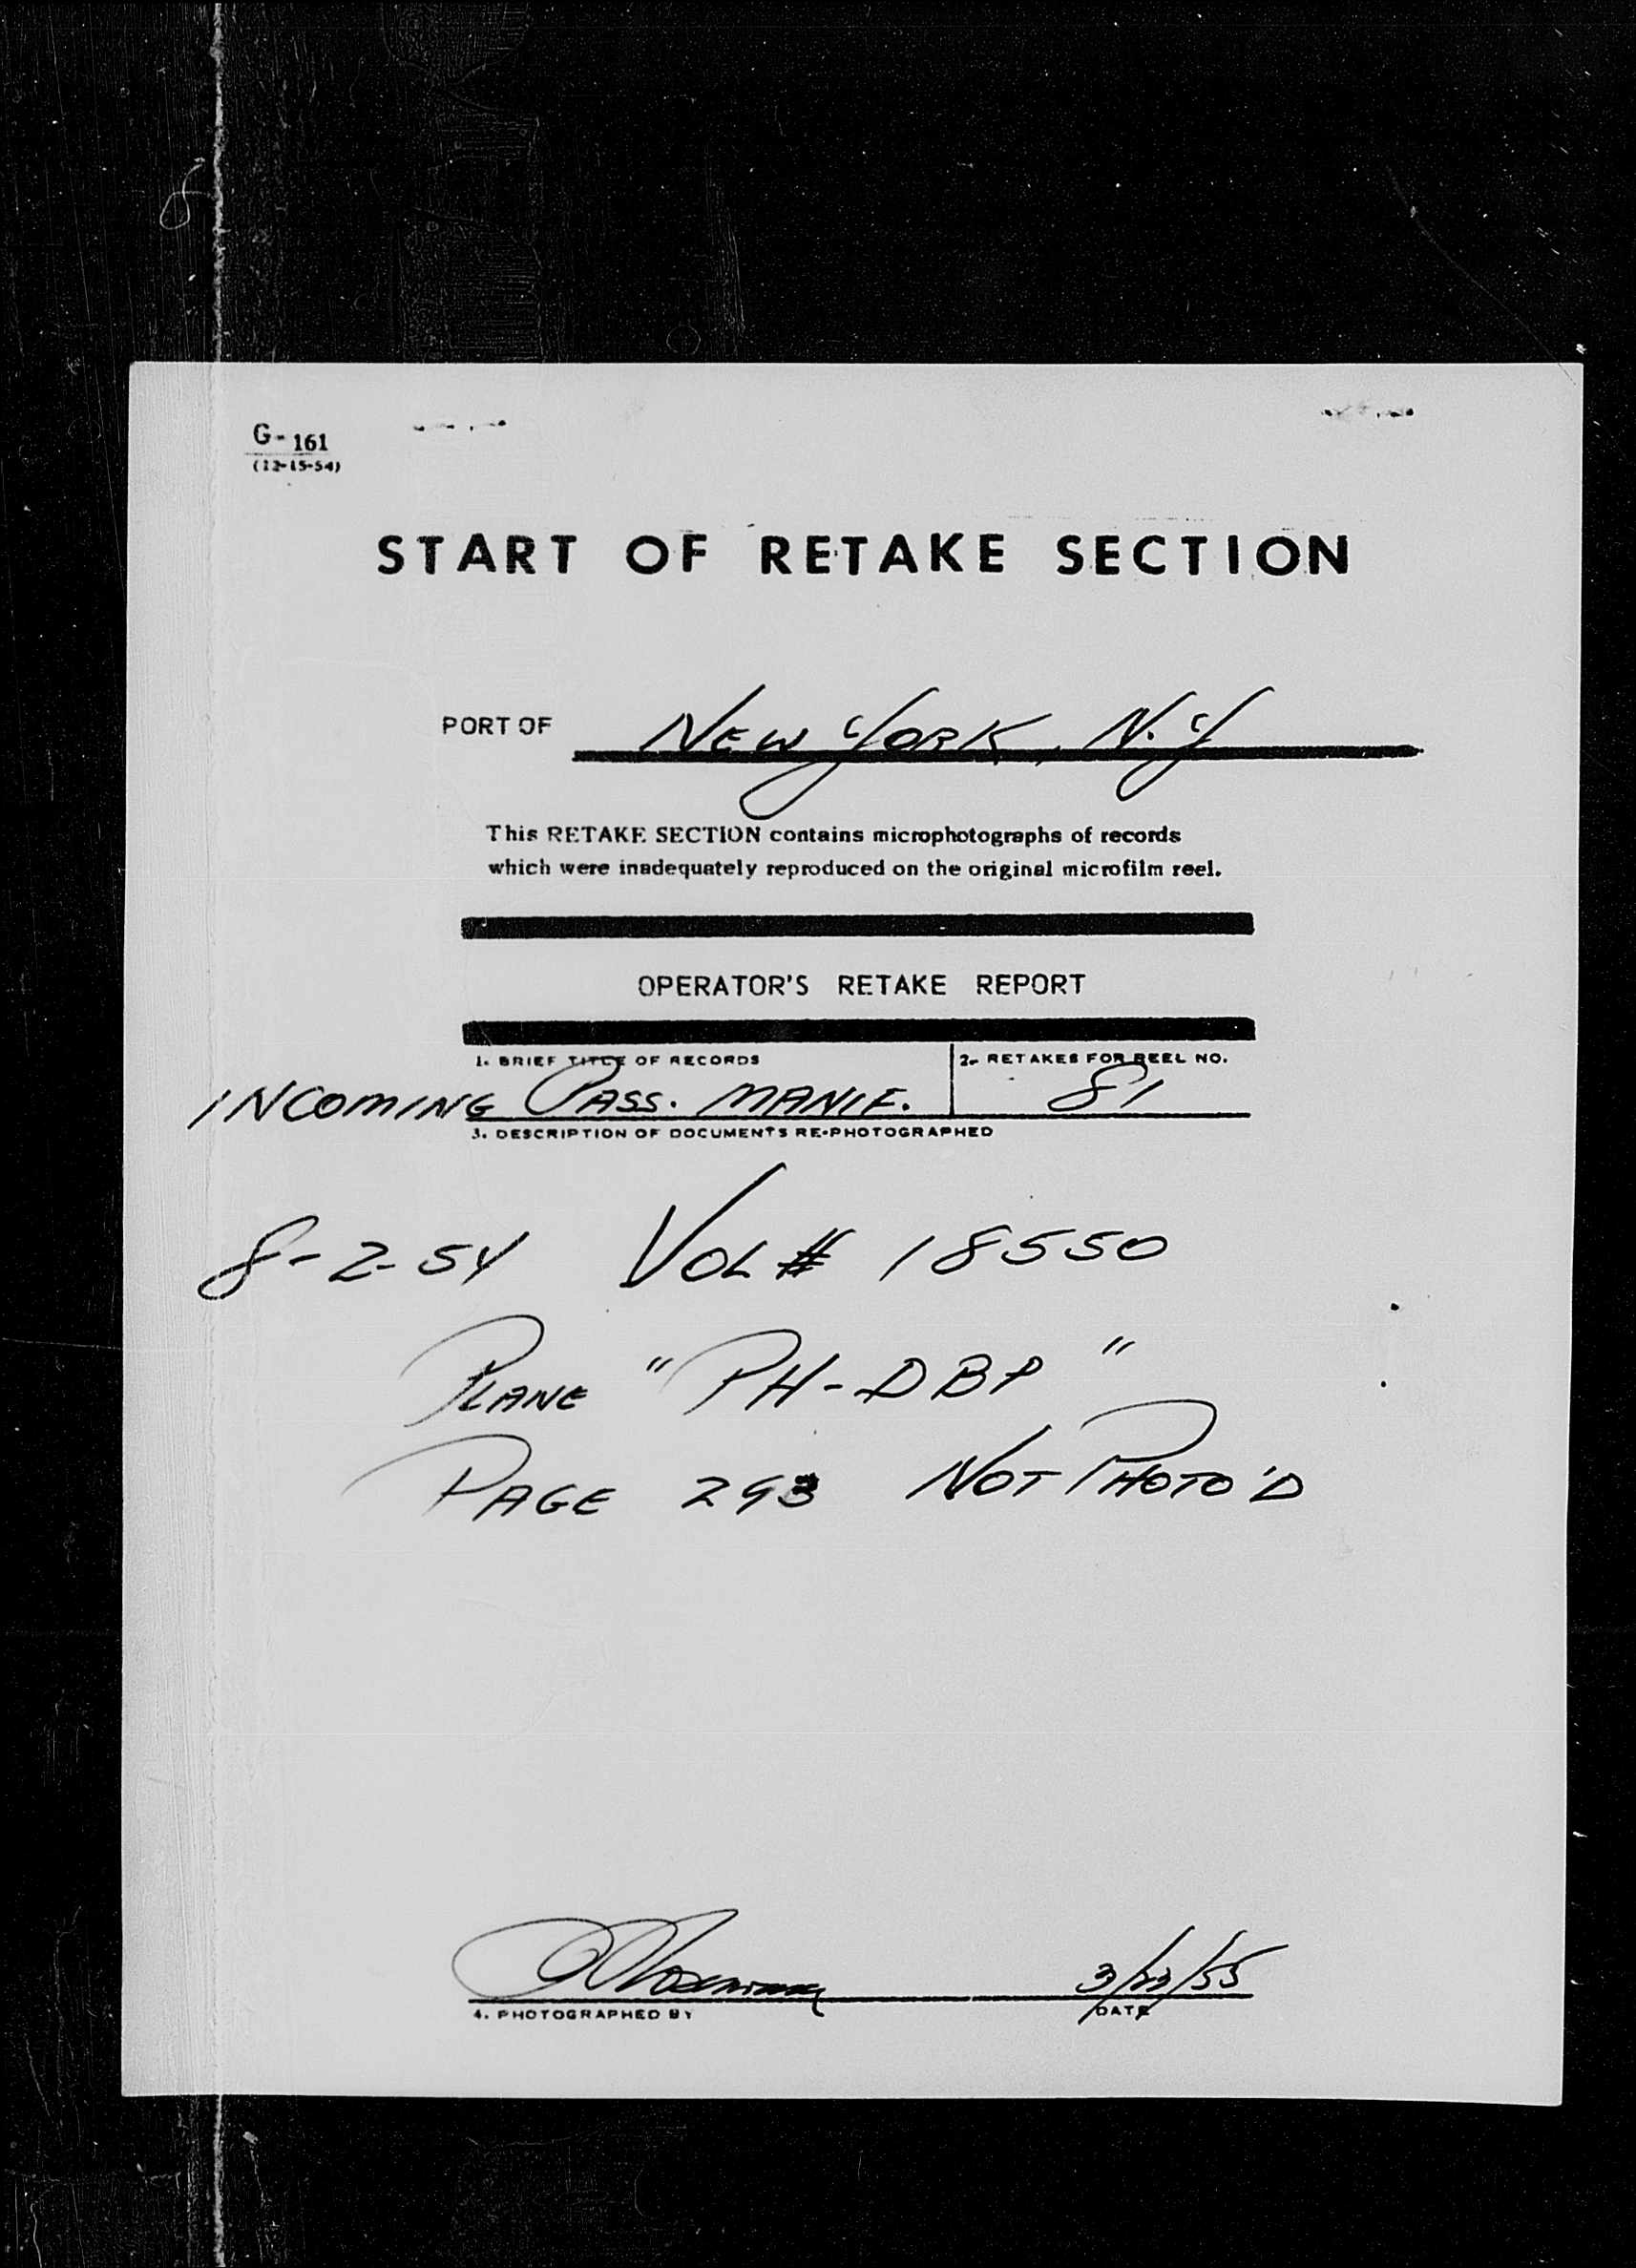 G-161
(12-15-54)
START OF RETAKE SECTION
PORT OF NEW YORK, N.Y
This RETAKE SECTION contains microphotographs of records
which were inadequately reproduced on the original microfilm reel.
OPERATOR'S RETAKE REPORT
1. BRIEF TITLE OF RECORDS
2. RETAKES FOR REEL NO.
INCOMING PASS. MANIF. 81
3. DESCRIPTION OF DOCUMENTS RE-PHOTOGRAPHED
8-2-54 VOL # 18550
PLANE "PH-DBP"
PAGE 293 NOT PHOTO'D
3/23/55
4. PHOTOGRAPHED BY
DATE